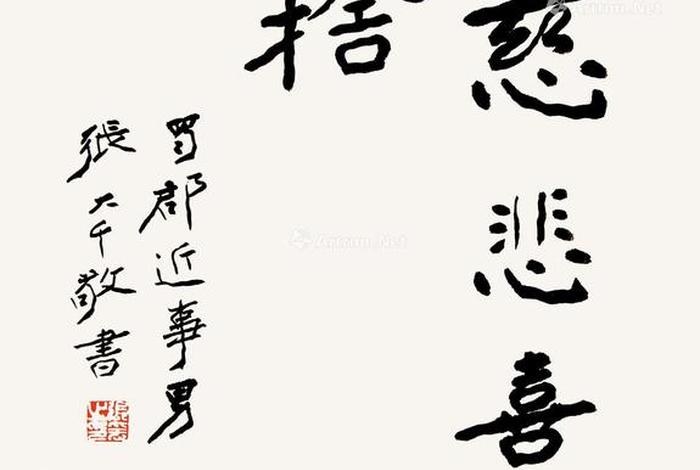 慈悲喜
捨
蜀郡近事男
張大千敬書
Artron.Net
Artron.Net